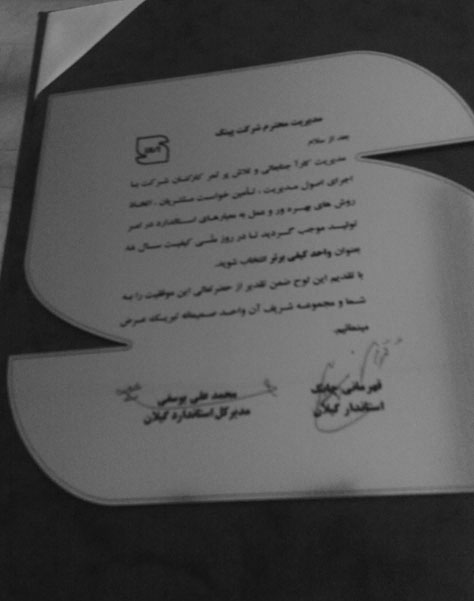 مدیریت محترم شرکت پینک
بعد از سلام
مدیریت کارآ جنابعالی و تلاش پر ثمر کارکنان شرکت با
اجرای اصول مدیریت ، تأمین خواست مشتریان ، اتخاذ
روش های بهره ور و عمل به معیارهای استاندارد در امر
تولید موجب گردید تا در روز ملی کیفیت سال
بعنوان واحد کیفی برتر انتخاب شوید.
با تقدیم این لوح ضمن تقدیر از حضرتعالی این موفقیت را به
شما و مجموعه شریف آن واحد صمیمانه تبریک عرض
مینمائیم.
قهرمانی چابک
استاندار گیلان
محمد علی یوسفی
مدیرکل استاندارد گیلان